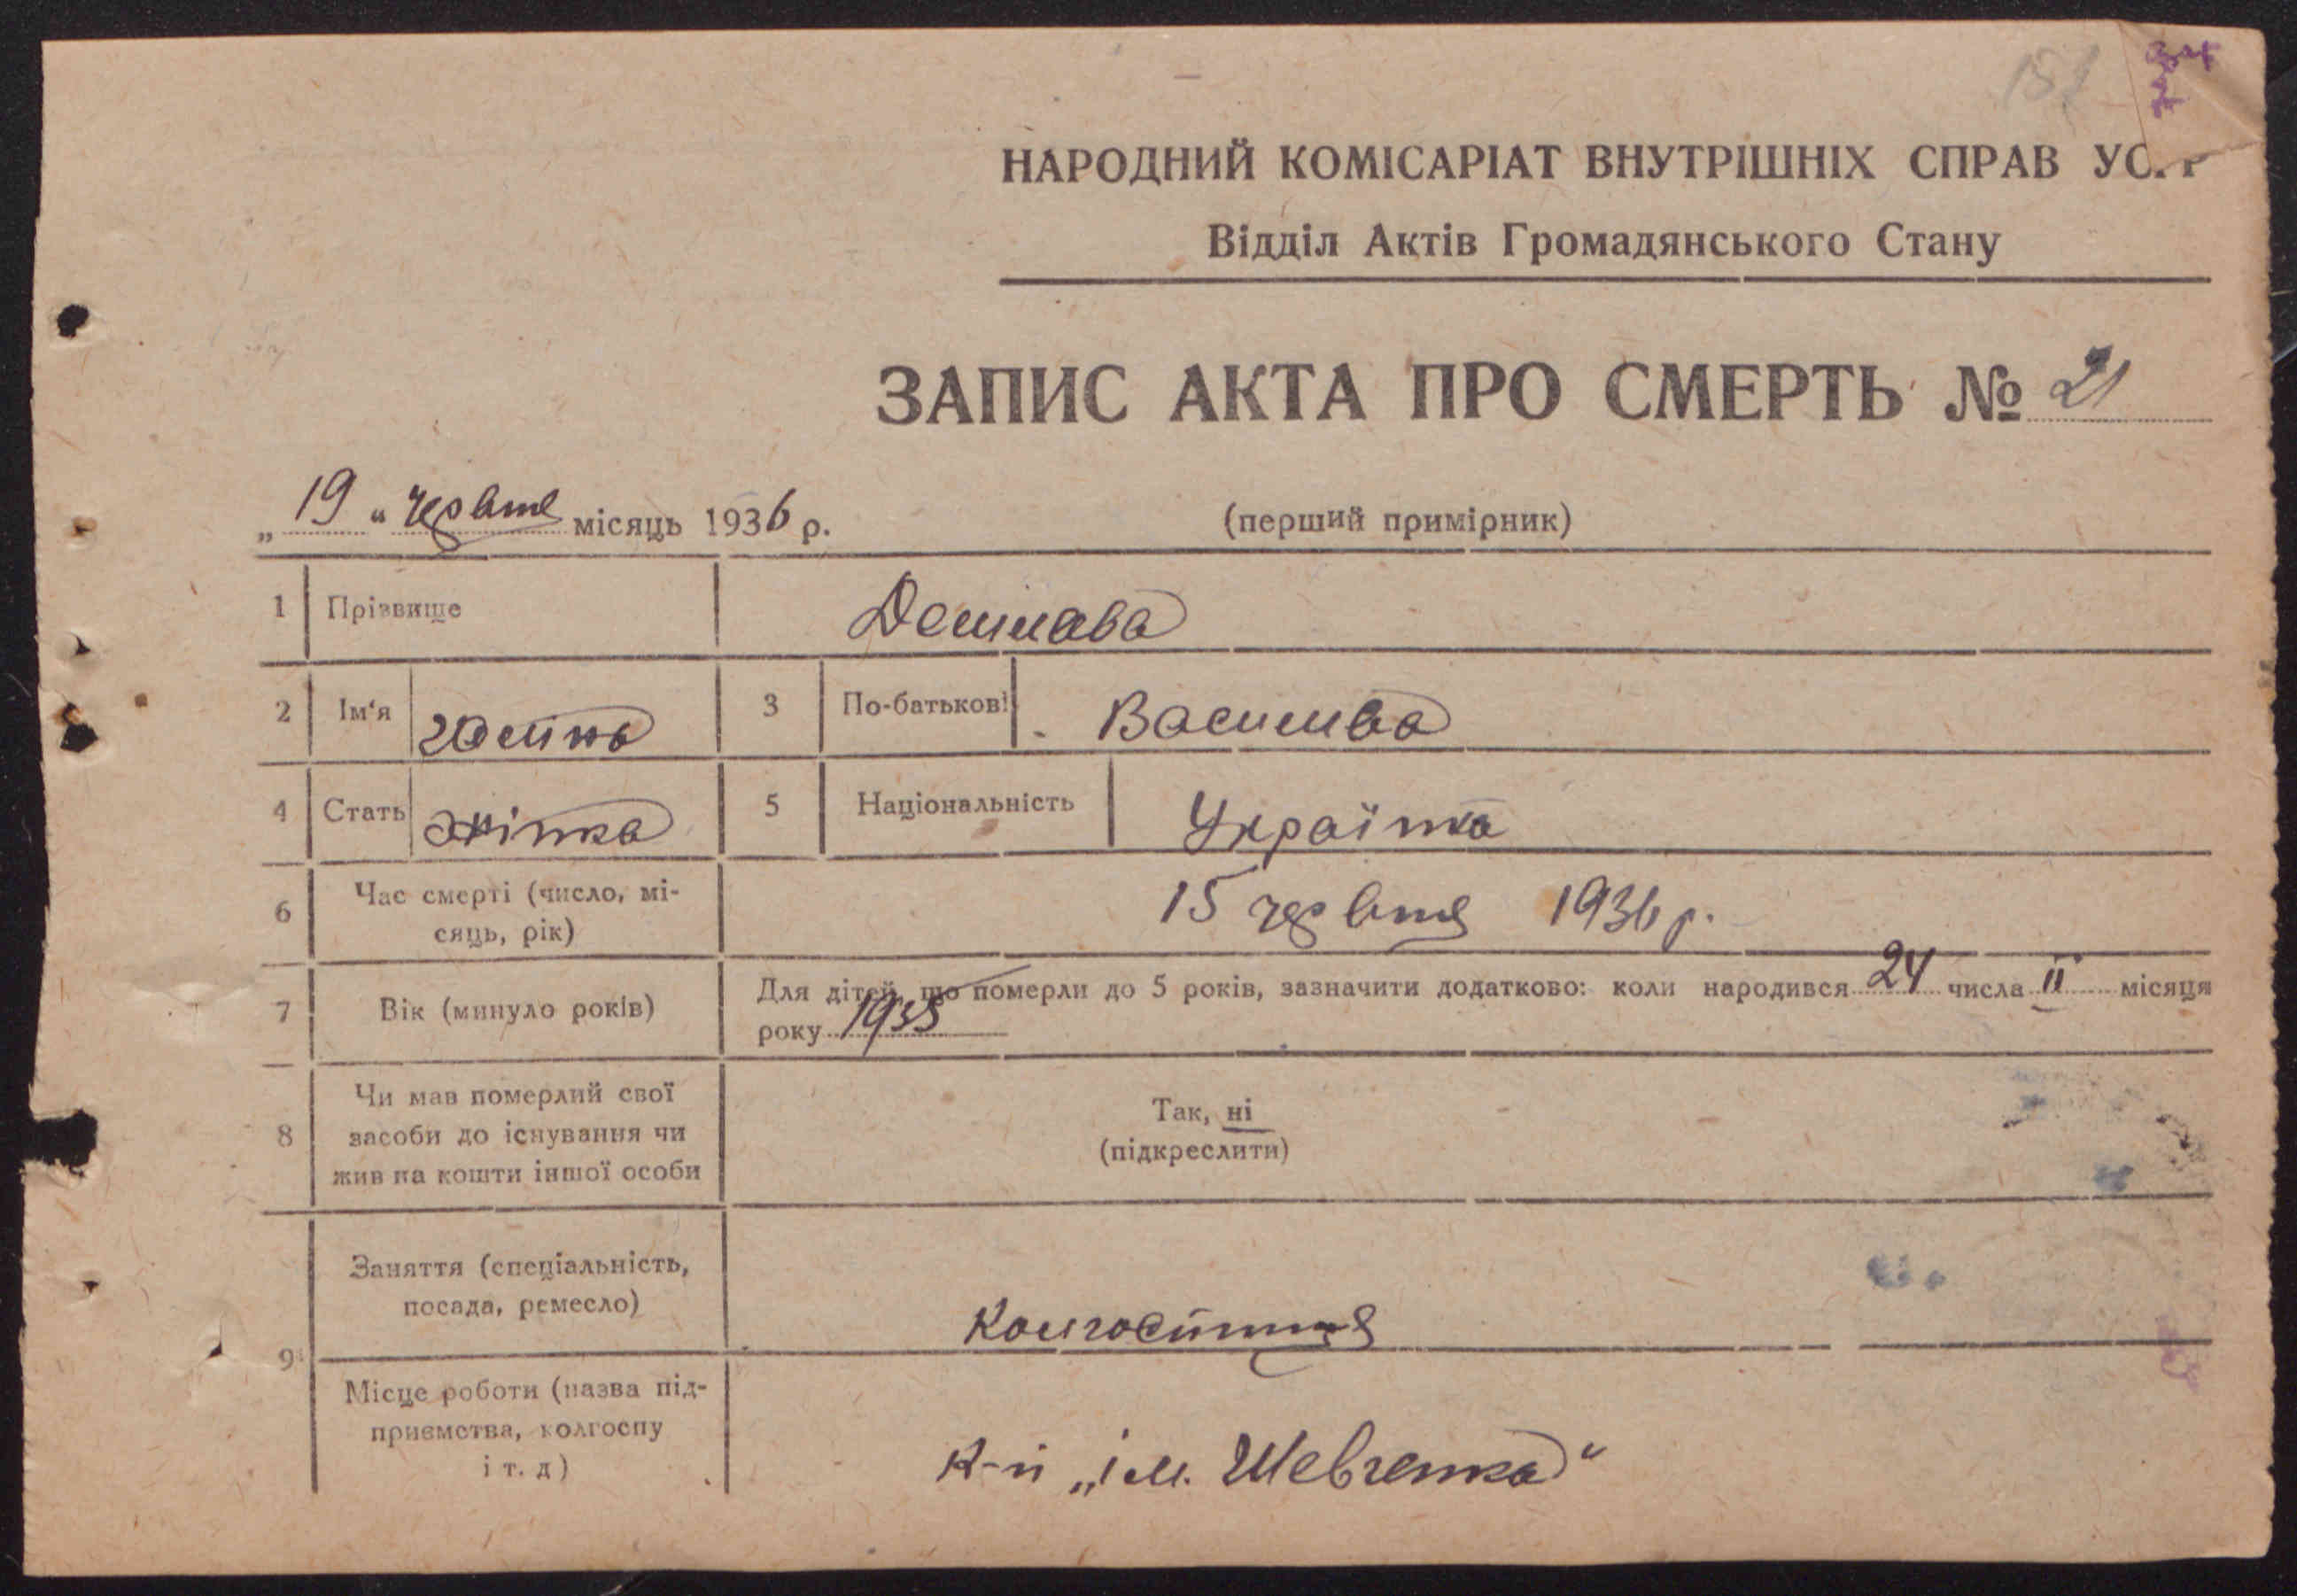 НАРОДНИЙ КОМІСАРІАТ ВНУТРІШНІХ СПРАВ
Відділ Актів Громадянського Стану
ЗАПИС АКТА ПРО СМЕРТЬ № 21
„19“ червня місяць 1936 р. (перший примірник)
1 Прізвище
2 Ім'я 3 По-батькові
4 Стать жінка 5 Національність Українка
6 Час смерті (число, мі-
сяць, рік) 15 червня 1936 р.
7 Вік (минуло років) Для дітей, що померли до 5 років, зазначити додатково: коли народився 24 числа II місяця
року 1935
8 Чи мав померлий свої
засоби до існування чи
жив на кошти іншої особи
Так, ні
(підкреслити)
9 Заняття (спеціальність,
посада, ремесло)
Місце роботи (назва під-
приємства, колгоспу
і т. д) к-п „ім. Шевченка“